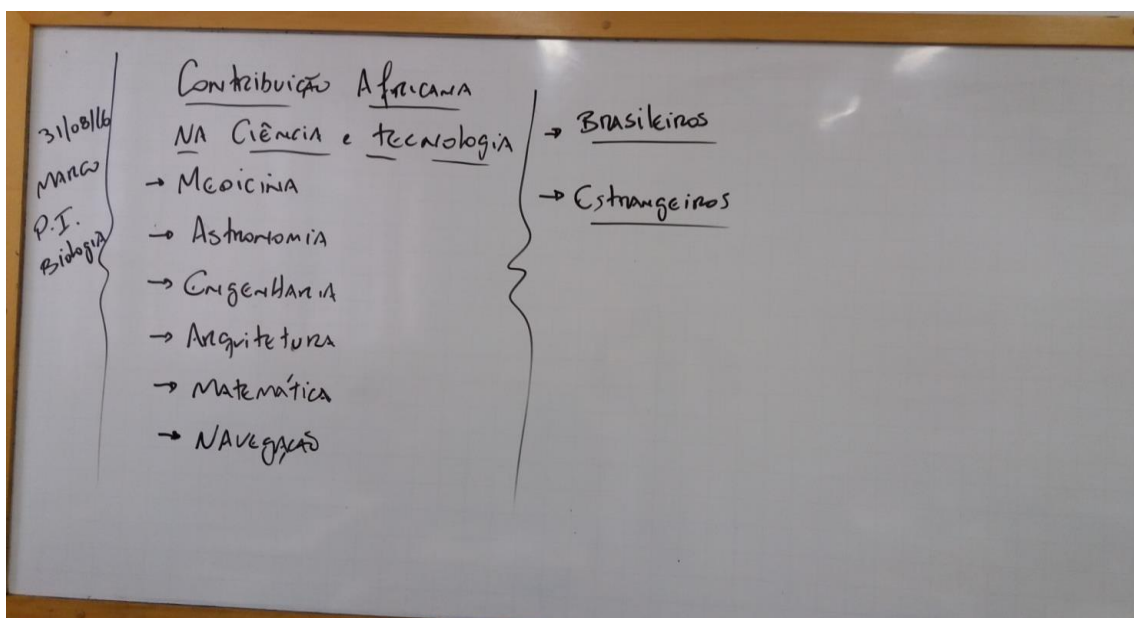 31/08/16
MARCO
P.I.
Biologia
Contribuição Africana
NA Ciência e tecnologia
→ Medicina
→ Astronomia
→ Engenharia
→ Arquitetura
→ Matemática
→ Navegação
→ Brasileiros
→ Estrangeiros